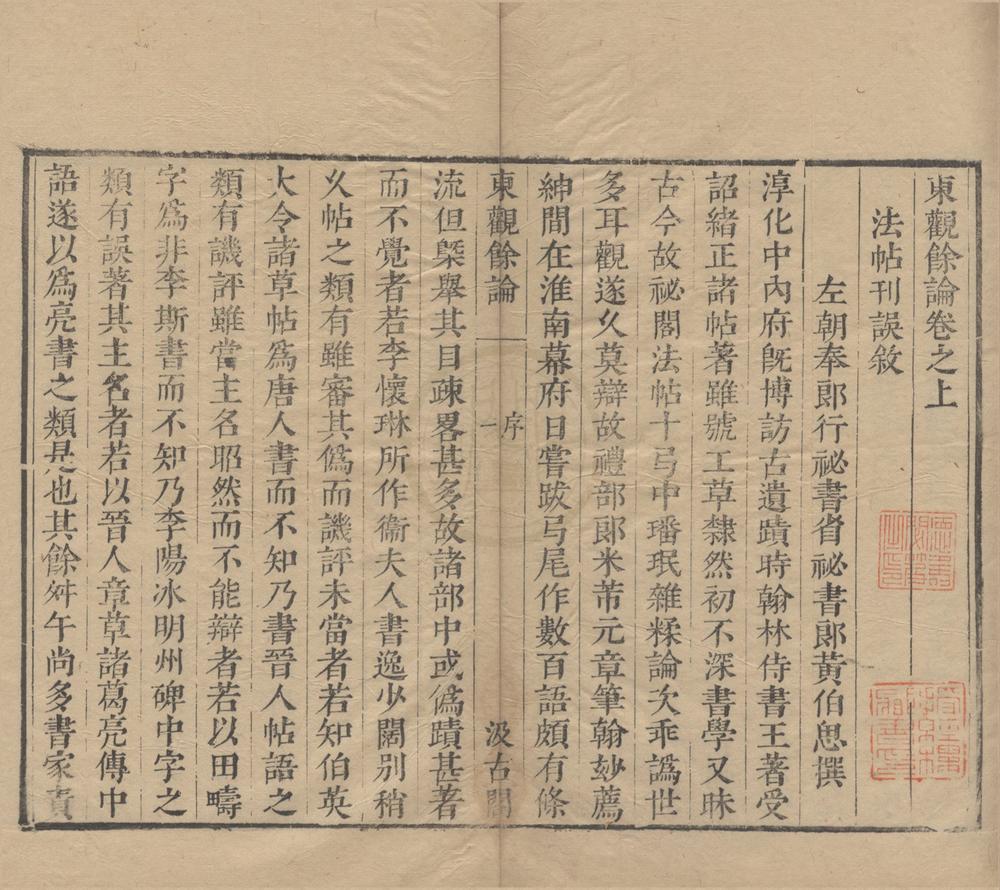 東觀餘論卷之上
法帖刊誤敘
左朝奉郎行祕書省祕書郎黃伯思撰
淳化中內府旣博訪古遺蹟時翰林侍書王著受
詔緒正諸帖著雖號工草隸然初不深書學又昧
古今故祕閣法帖十弓中璠珉雜糅論次乖譌世
多耳觀遂久莫辯故禮部郎米芾元章筆翰妙薦
紳間在淮南幕府日嘗跋弓尾作數百語頗有條
東觀餘論 序 一 汲古閣
流但槩舉其目疎畧甚多故諸部中或僞蹟甚著
而不覺者若李懷琳所作衞夫人書逸少闊別稍
久帖之類有雖審其僞而譏評未當者若知伯英
大令諸草帖爲唐人書而不知乃書晉人帖語之
類有譏評雖當主名昭然而不能辯者若以田疇
字爲非李斯書而不知乃李陽冰明州碑中字之
類有誤著其主名者若以晉人章草諸葛亮傳中
語遂以爲亮書之類是也其餘舛午尚多書家責